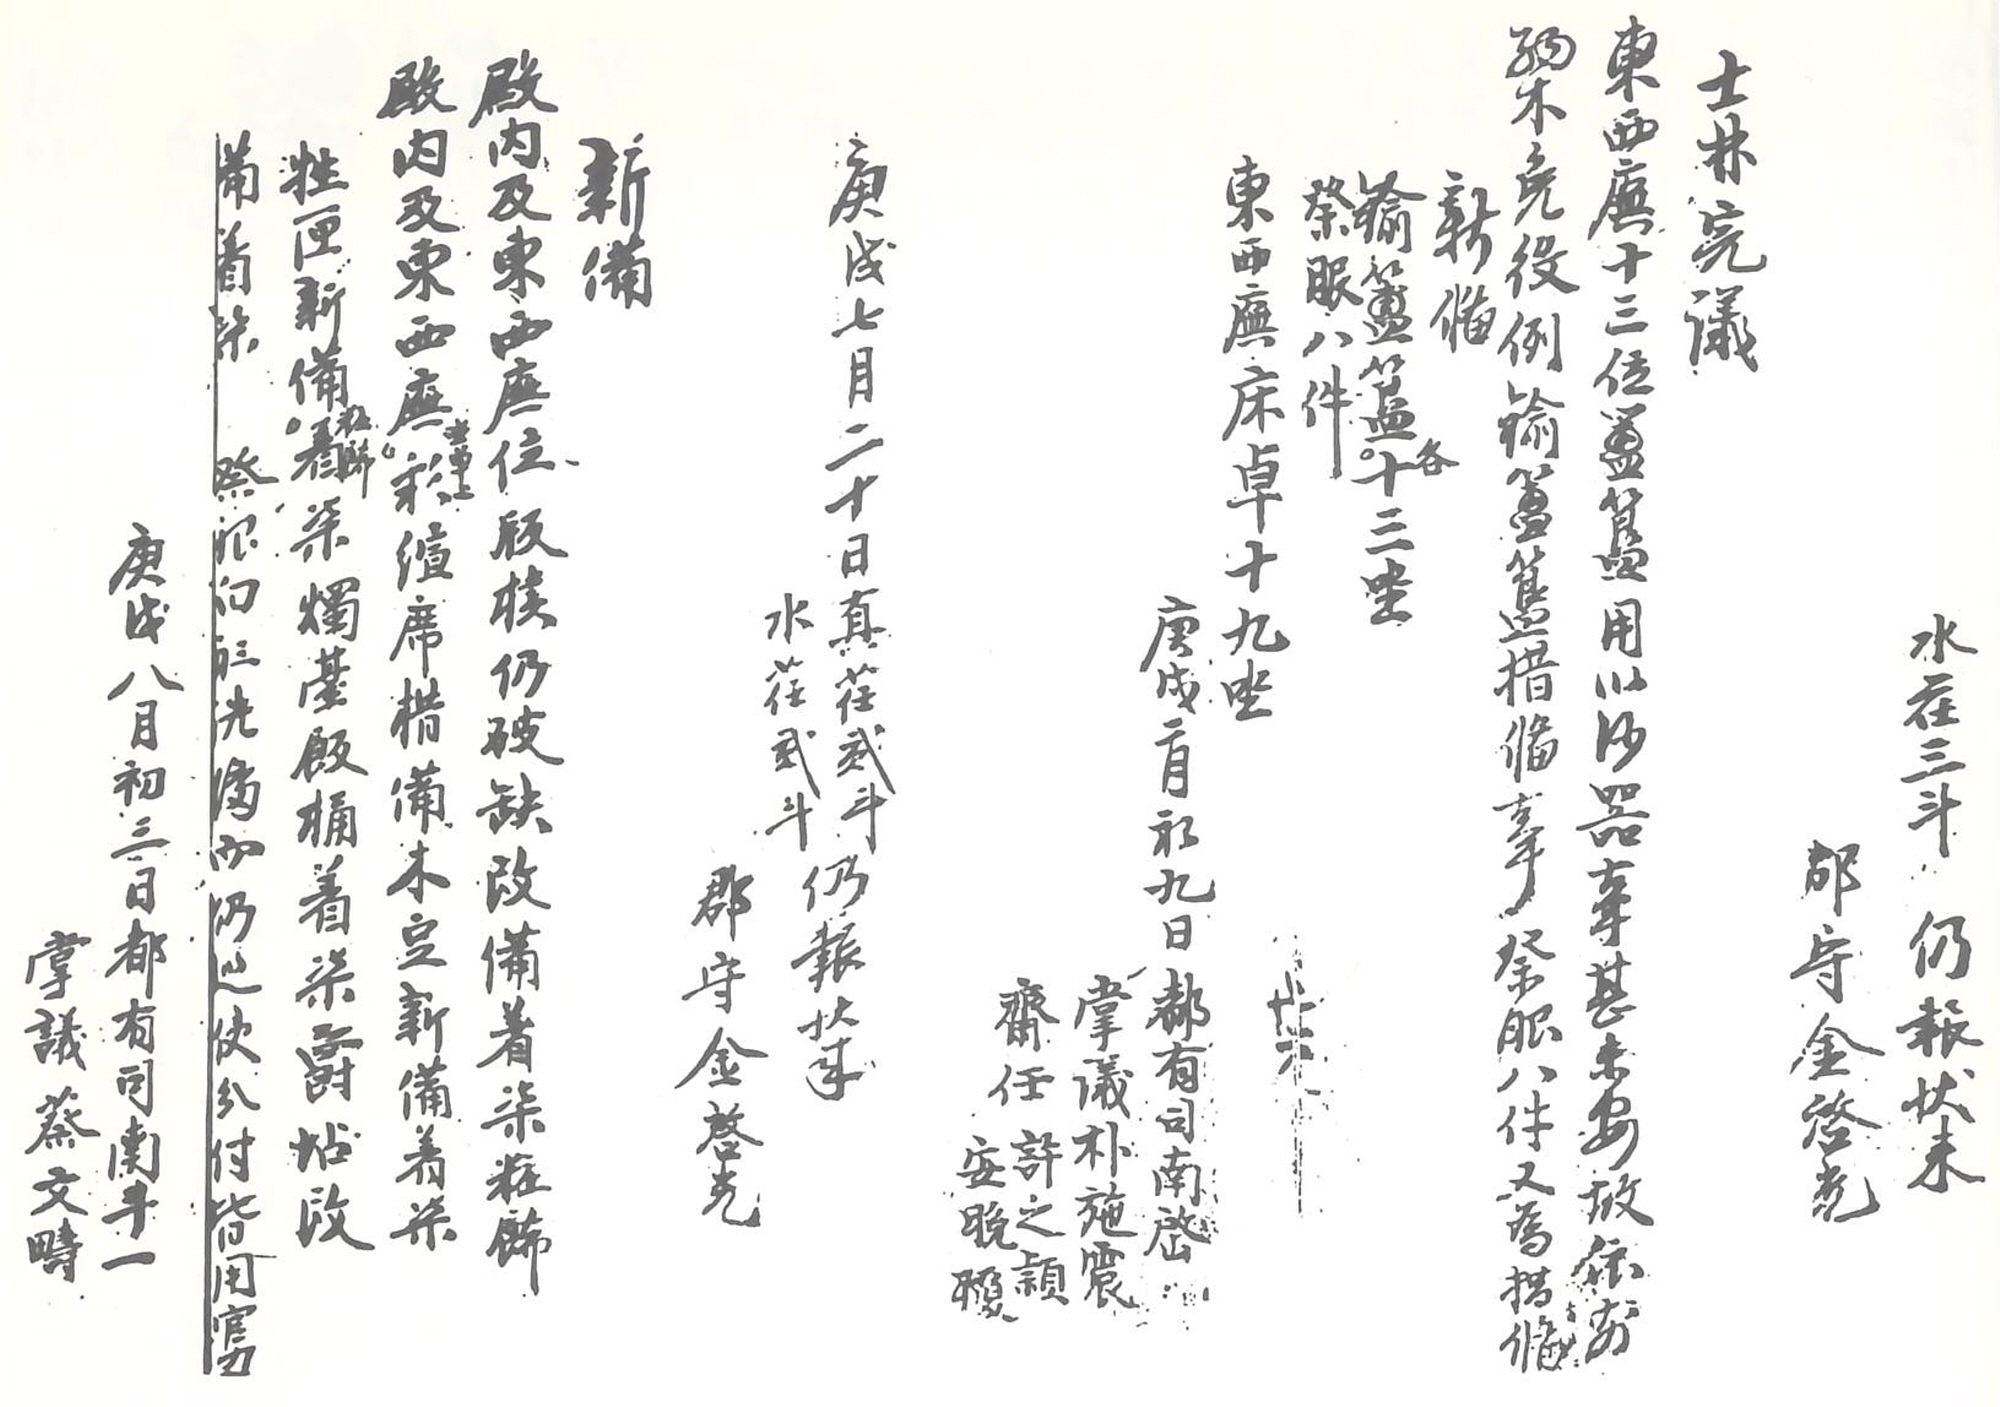 水荏三斗 仍報伏來
郡守金啓光
士林完議
東西廡十三位簠簋用以沙器事甚未安故依前
弱木免役例鍮簠簋措備事祭服八件又爲措備
新備
鍮簠簋各十三坐
祭服八件
東西廡床卓十九坐
庚戌二月初九日都有司南啓
掌議朴施震
齋任 許之穎
安晩
庚戌七月二十日真荏貳斗仍報伏來
水荏貳斗
郡守金啓光
新備
殿內及東西廡位版樻仍破缺改備着柒粧餙
殿內及東西廡彩繥席措備木豆新備着柒
牲匣新備着柒粧餙燭臺飯桶着柒爵坫改
備着柒 祭服
仍 使分付皆用官力
庚戌八月初三日都有司南斗一
掌議蔡文疇